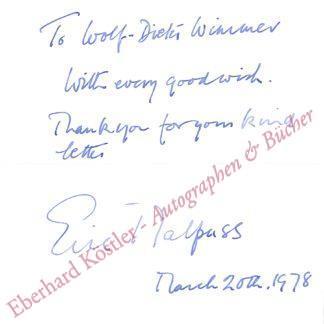 To Wolf-Dieter Wimmer
With every good wish.
Thank you for your kind
letter
Eric Malpass
March 20th. 1978
Eberhard Köstler - Autographen & Bücher